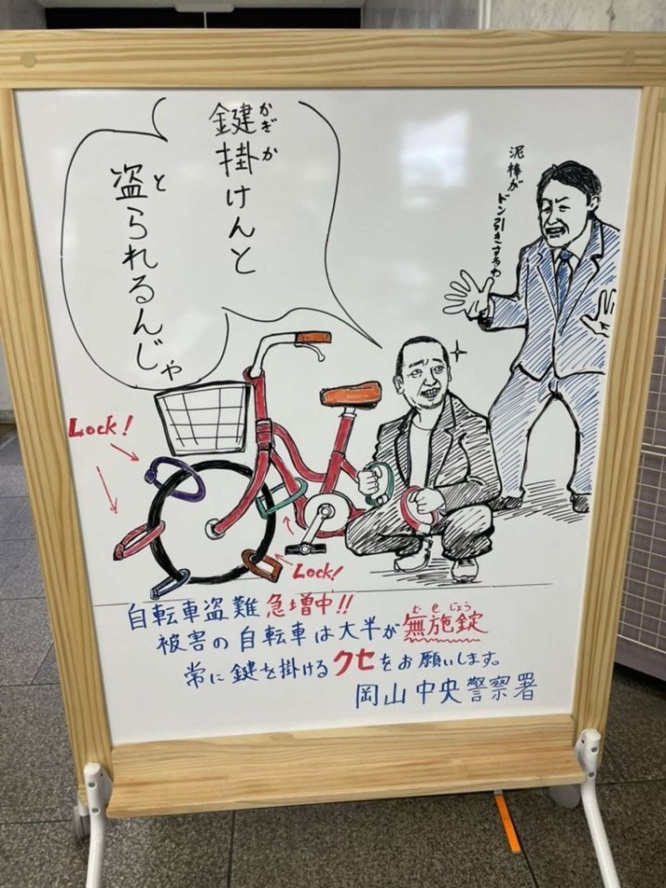 鍵掛けんと
かぎか
盗られるんじゃ
と
泥棒が
ドン引きするわ
Lock!
Lock!
自転車盗難急増中!!
被害の自転車は大半が無施錠
むせじょう
常に鍵を掛けるクセをお願いします。
岡山中央警察署